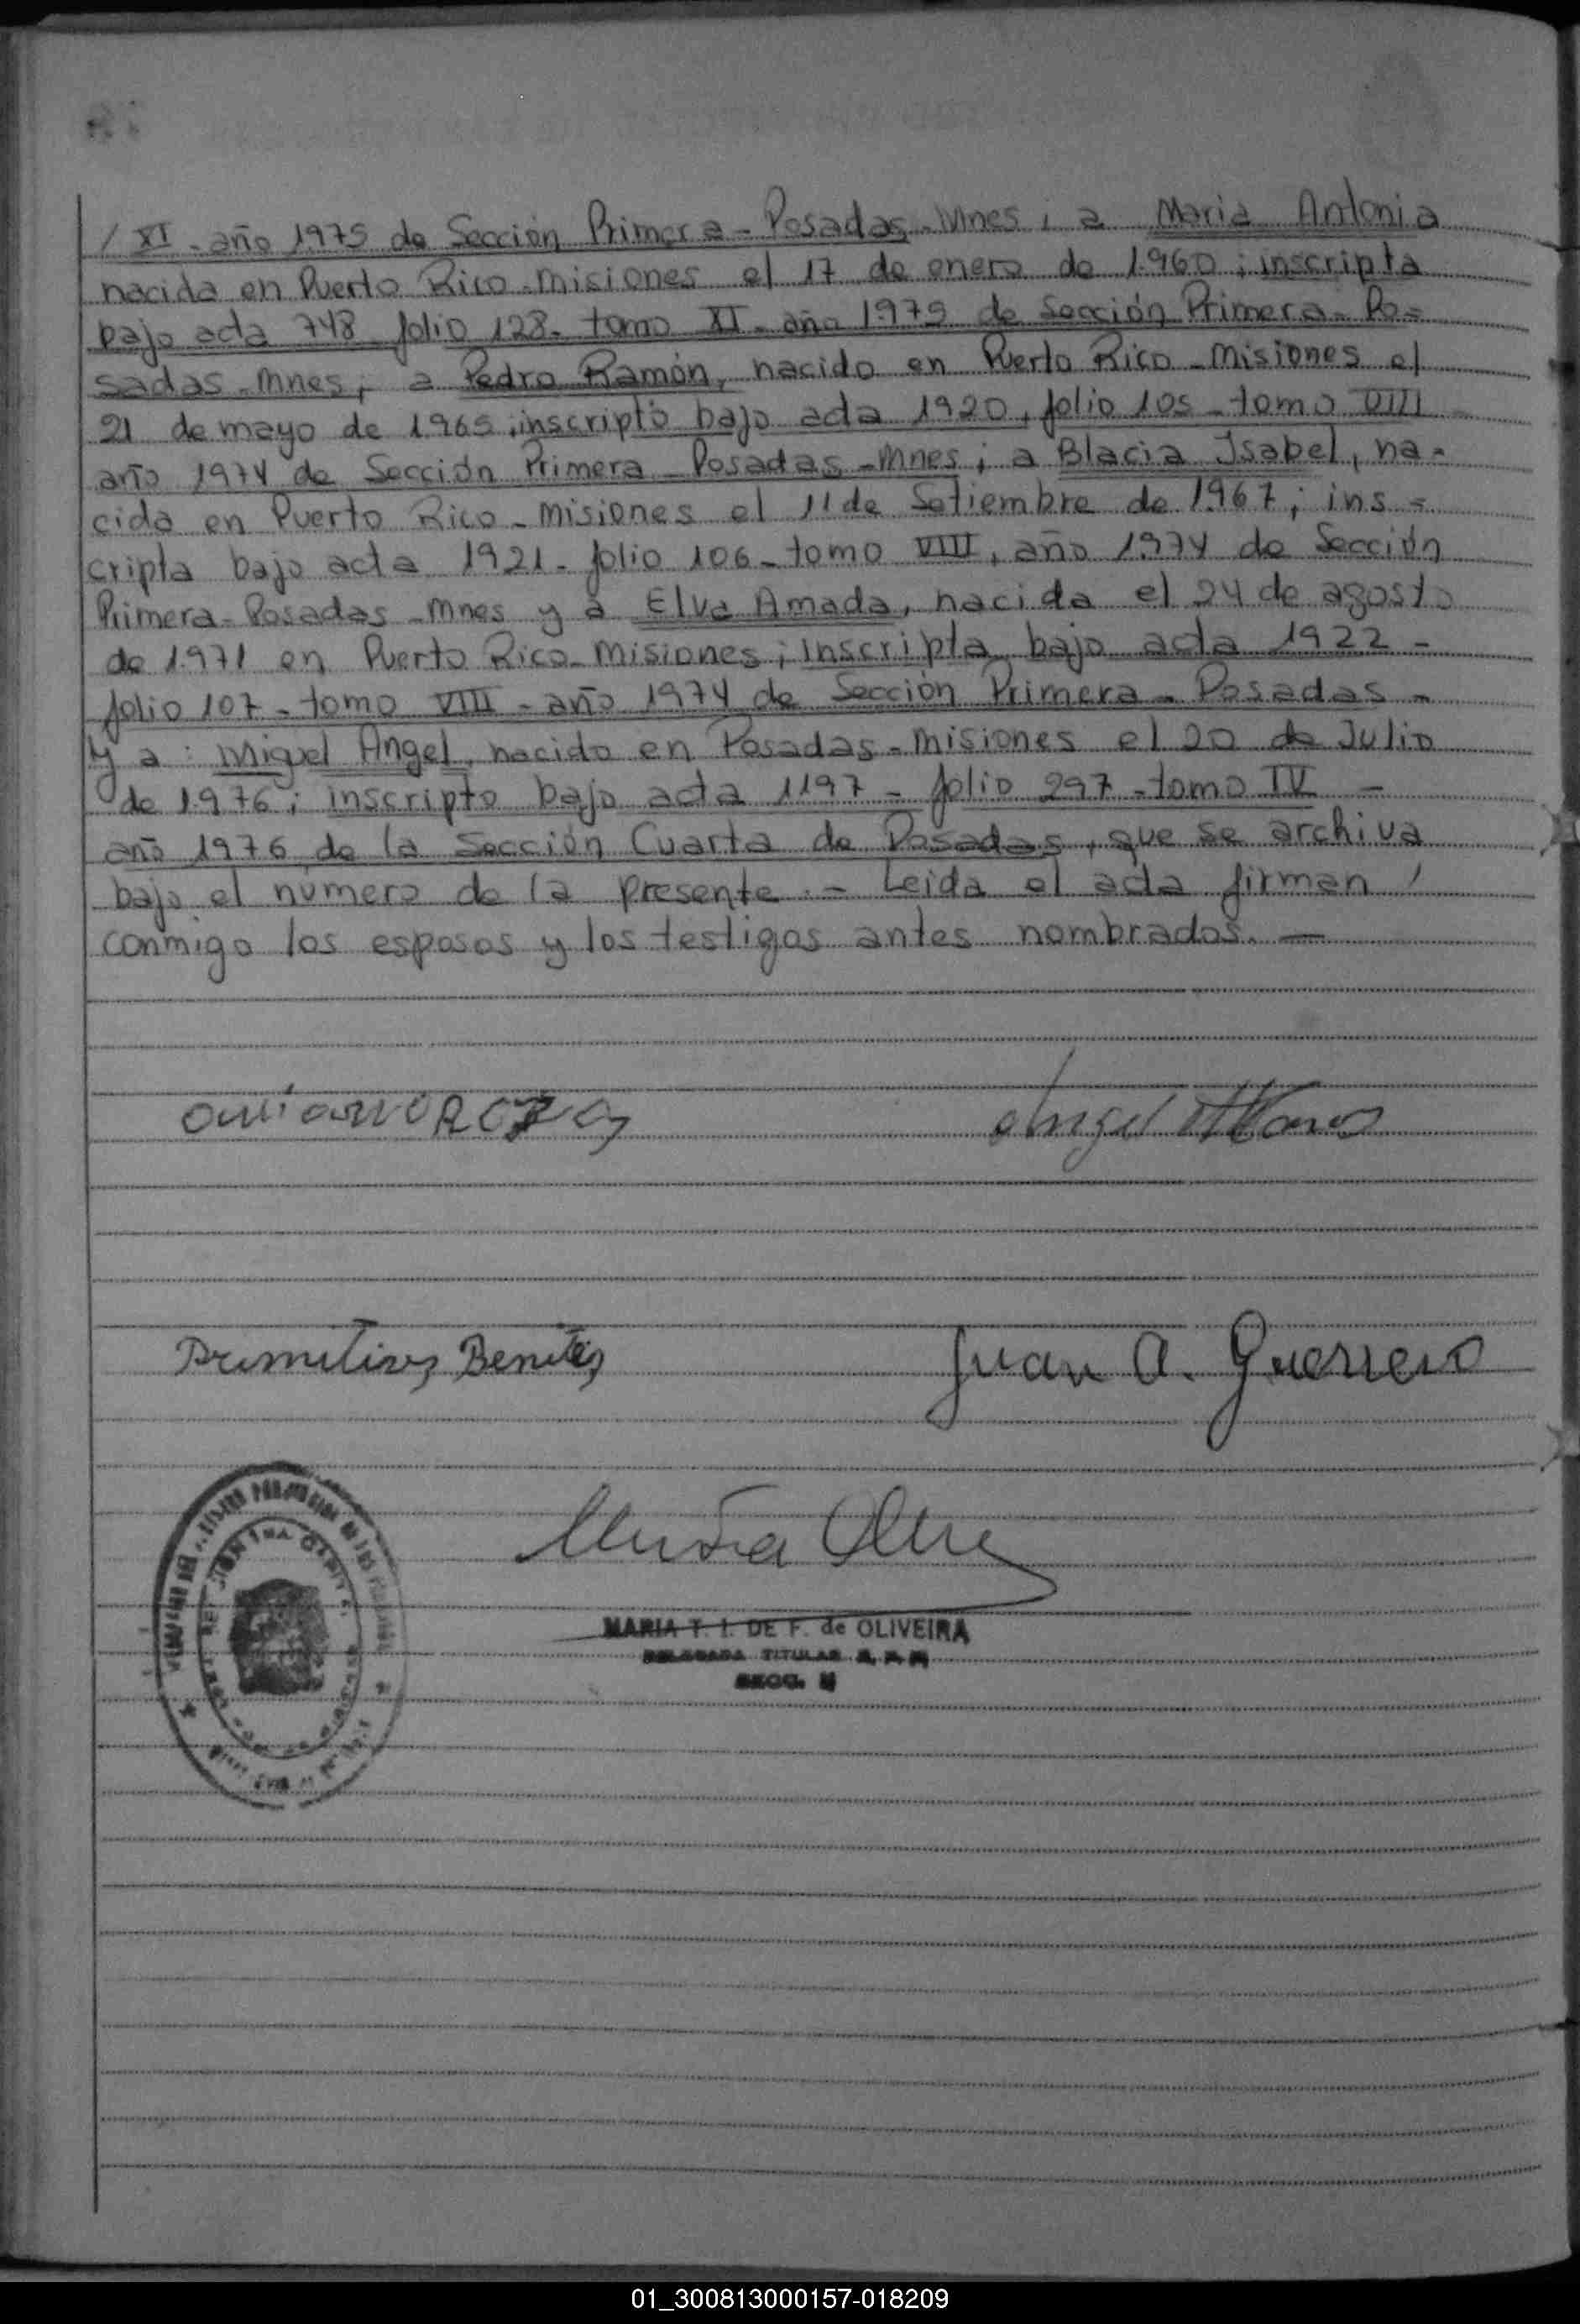 / XI - año 1975 de Sección Primera - Posadas - Mnes, a Maria Antonia
nacida en Puerto Rico - Misiones el 17 de enero de 1.960; inscripta
bajo acta 748 folio 128 - tomo XI - año 1975 de Sección Primera - Po=
sadas - Mnes; a Pedro Ramón, nacido en Puerto Rico - Misiones el
21 de mayo de 1965; inscripto bajo acta 1920, folio 105 - tomo VIII
año 1974 de Sección Primera - Posadas - Mnes; a Blacia Isabel, na=
cida en Puerto Rico - Misiones el 11 de Setiembre de 1.967; ins=
cripta bajo acta 1921 - folio 106 - tomo VIII, año 1974 de Sección
Primera - Posadas - Mnes y a Elva Amada, nacida el 24 de agosto
de 1.971 en Puerto Rico - Misiones; inscripta bajo acta 1922 -
folio 107 - tomo VIII - año 1974 de Sección Primera - Posadas -
y a: Miguel Angel, nacido en Posadas - Misiones el 20 de Julio
de 1.976; inscripto bajo acta 1197 - folio 297 - tomo IV -
año 1976 de la Sección Cuarta de Posadas, que se archiva
bajo el número de la presente. - Leida el acta firman /
conmigo los esposos y los testigos antes nombrados. -
Angel
Primitivo Benitez
Juan A. Guerrero
MARIA T. I. DE F. de OLIVEIRA
TITULAR
SECC.
01_300813000157-018209